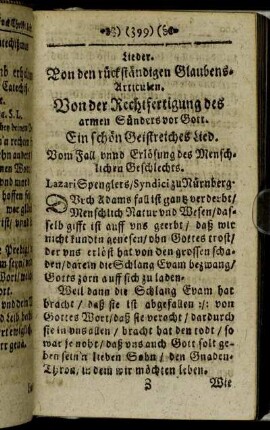 (399)
Lieder.
Von den rückständigen Glaubens-
Articulen.
Von der Rechtfertigung des
armen Sünders vor Gott.
Ein schön Geistreiches Lied.
Vom Fall vnnd Erlösung des Mensch-
lichen Geschlechts.
Lazari Spenglers/Syndici zu Nürnberg.
DVrch Adams fall ist gantz verderbt/
Menschlich Natur vnd Wesen/das-
selb gifft ist auff vns geerbt/ daß wir
nicht kundten genesen/ ohn Gottes trost/
der vns erlöst hat von den grossen scha-
den/darein die Schlang Evam bezwang/
Gotts zorn auff sich zu laden.
Weil dann die Schlang Evam hat
bracht/ daß sie ist abgefallen :/: von
Gottes Wort/daß sie veracht/ dardurch
sie in vns allen/ bracht hat den todt/ so
war je noht/ daß vns auch Gott solt ge-
ben sein'n lieben Sohn/ den Gnaden-
Thron/in dem wir möchten leben.
Wie